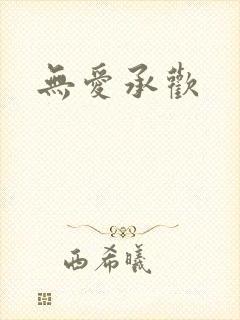 無愛承歡
西希曦